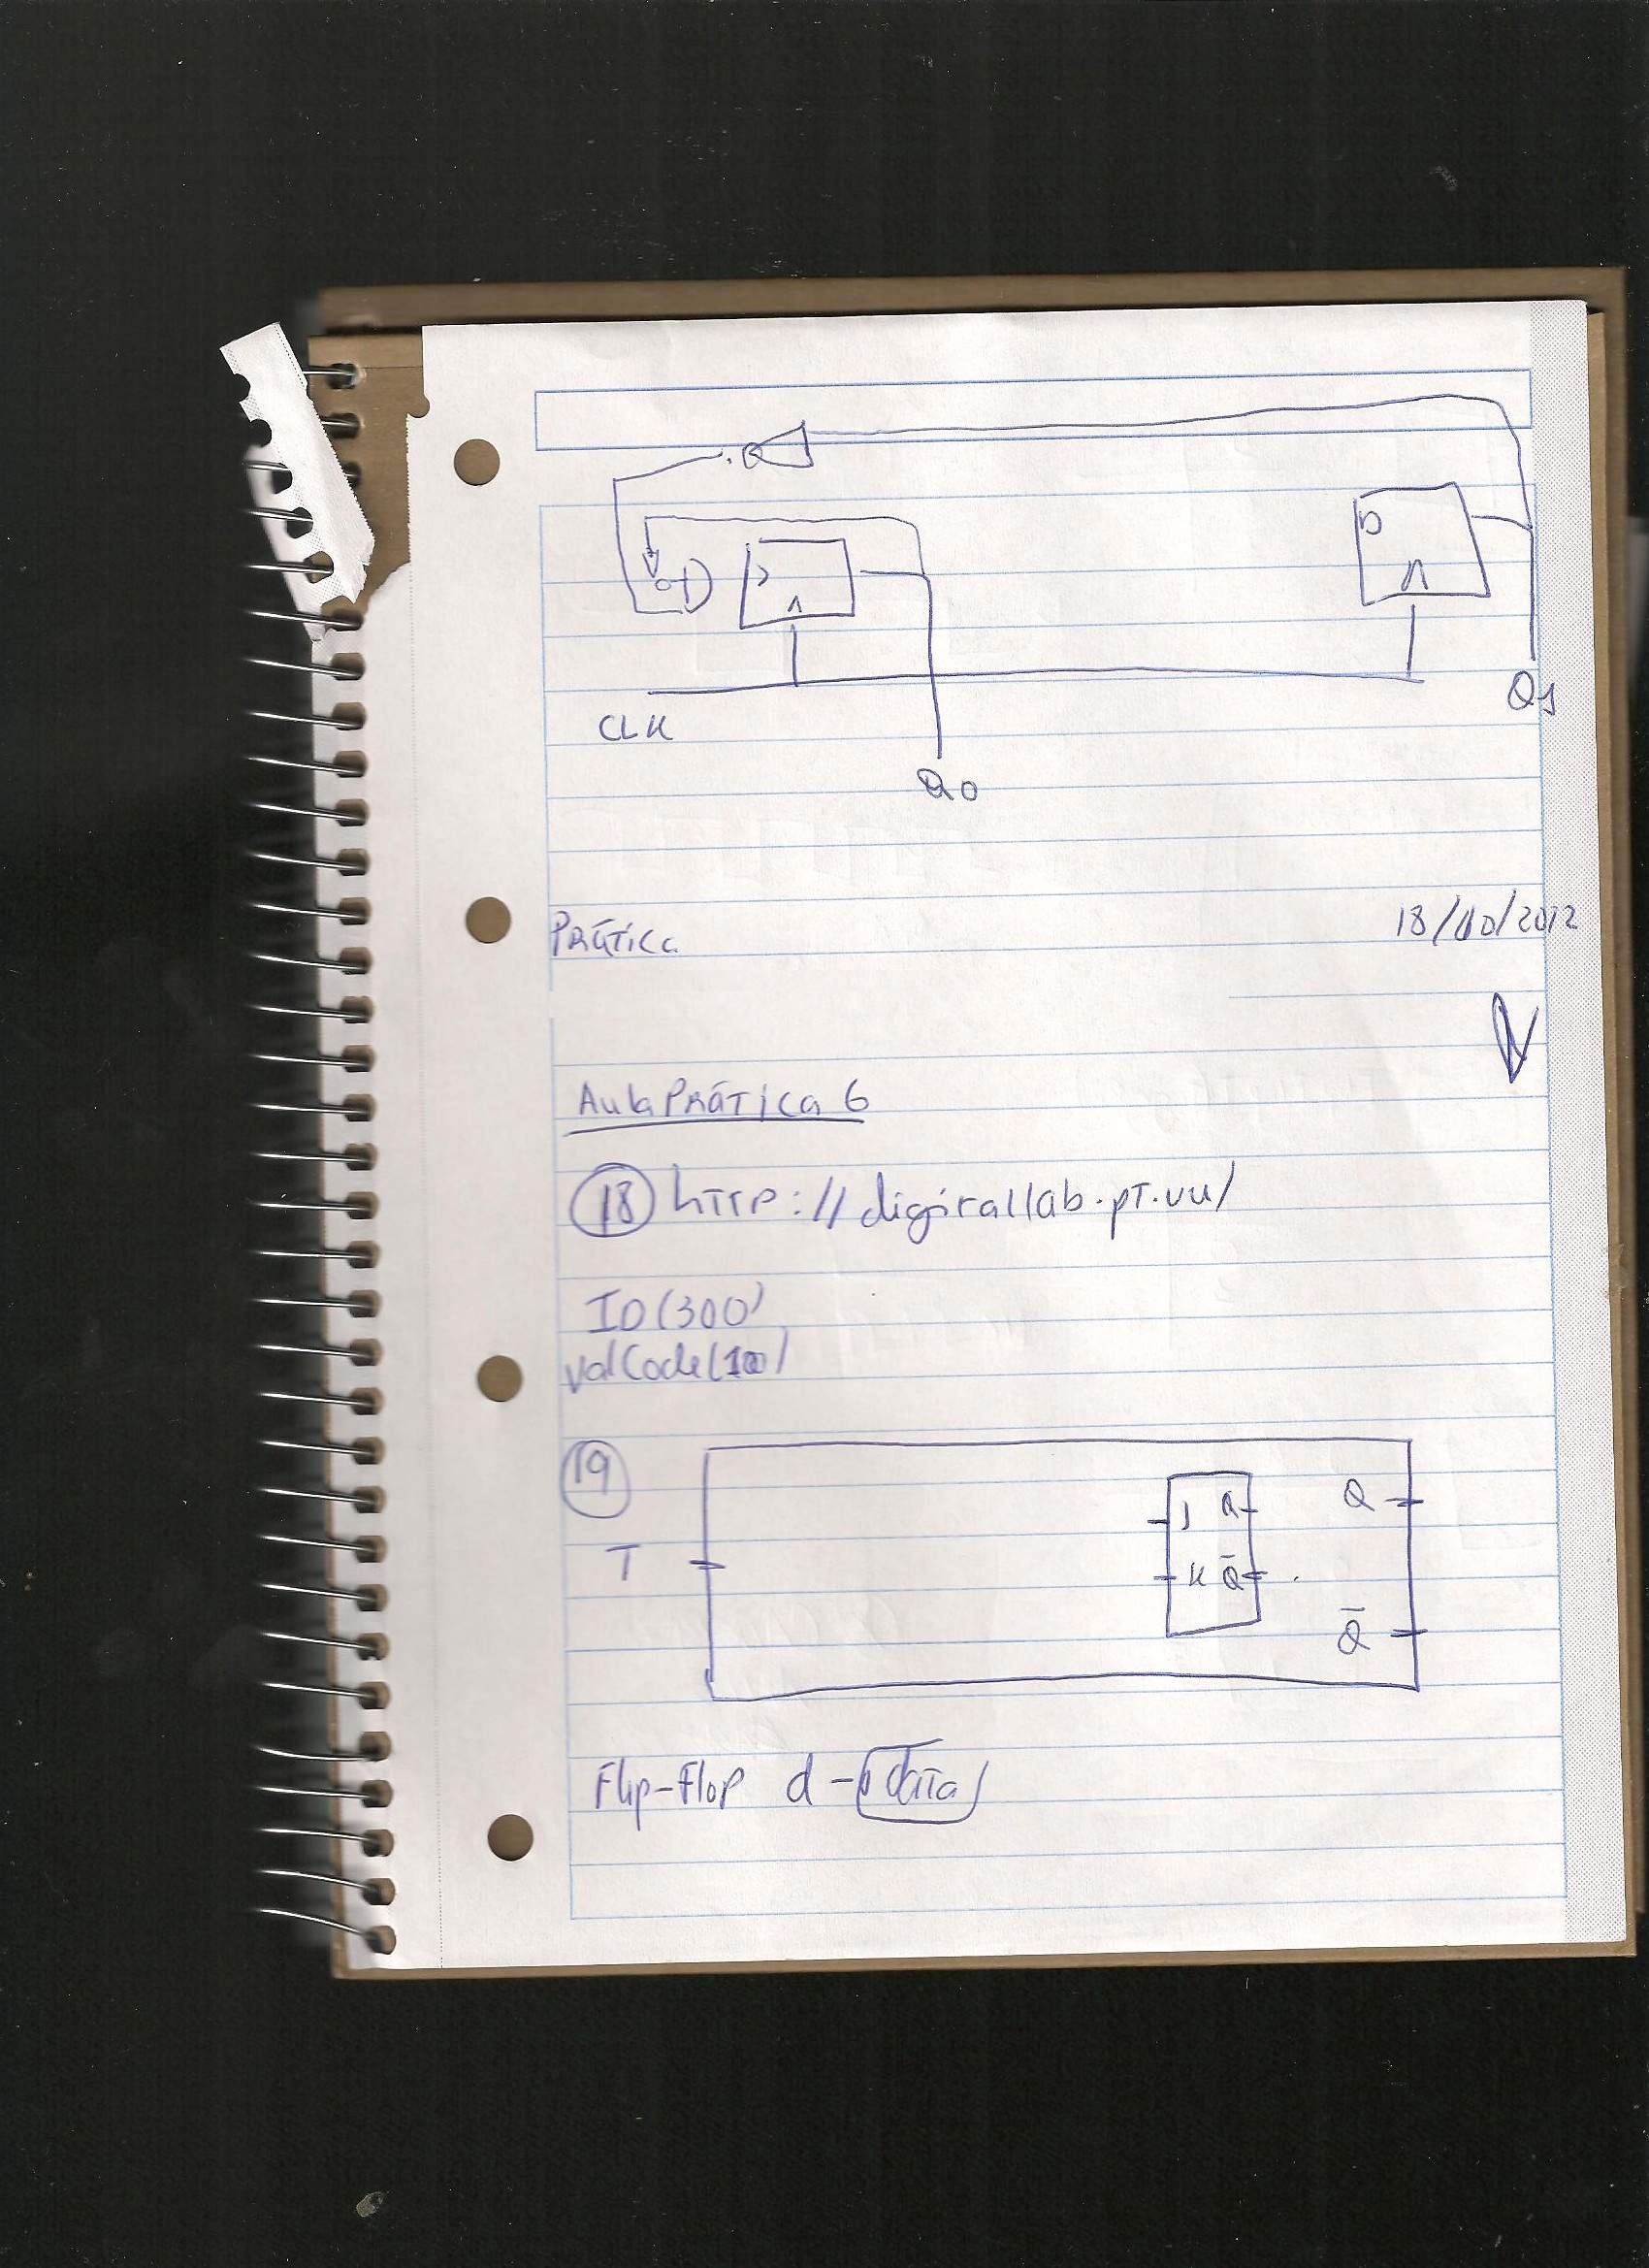 D
D
Q1
CLK
Q0
Prática 18/10/2012
Aula Prática 6
18 http://digitallab.pt.vu/
ID(300)
ValCode(100)
19
J Q Q
T
K Q̅
Q̅
Flip-Flop d - data